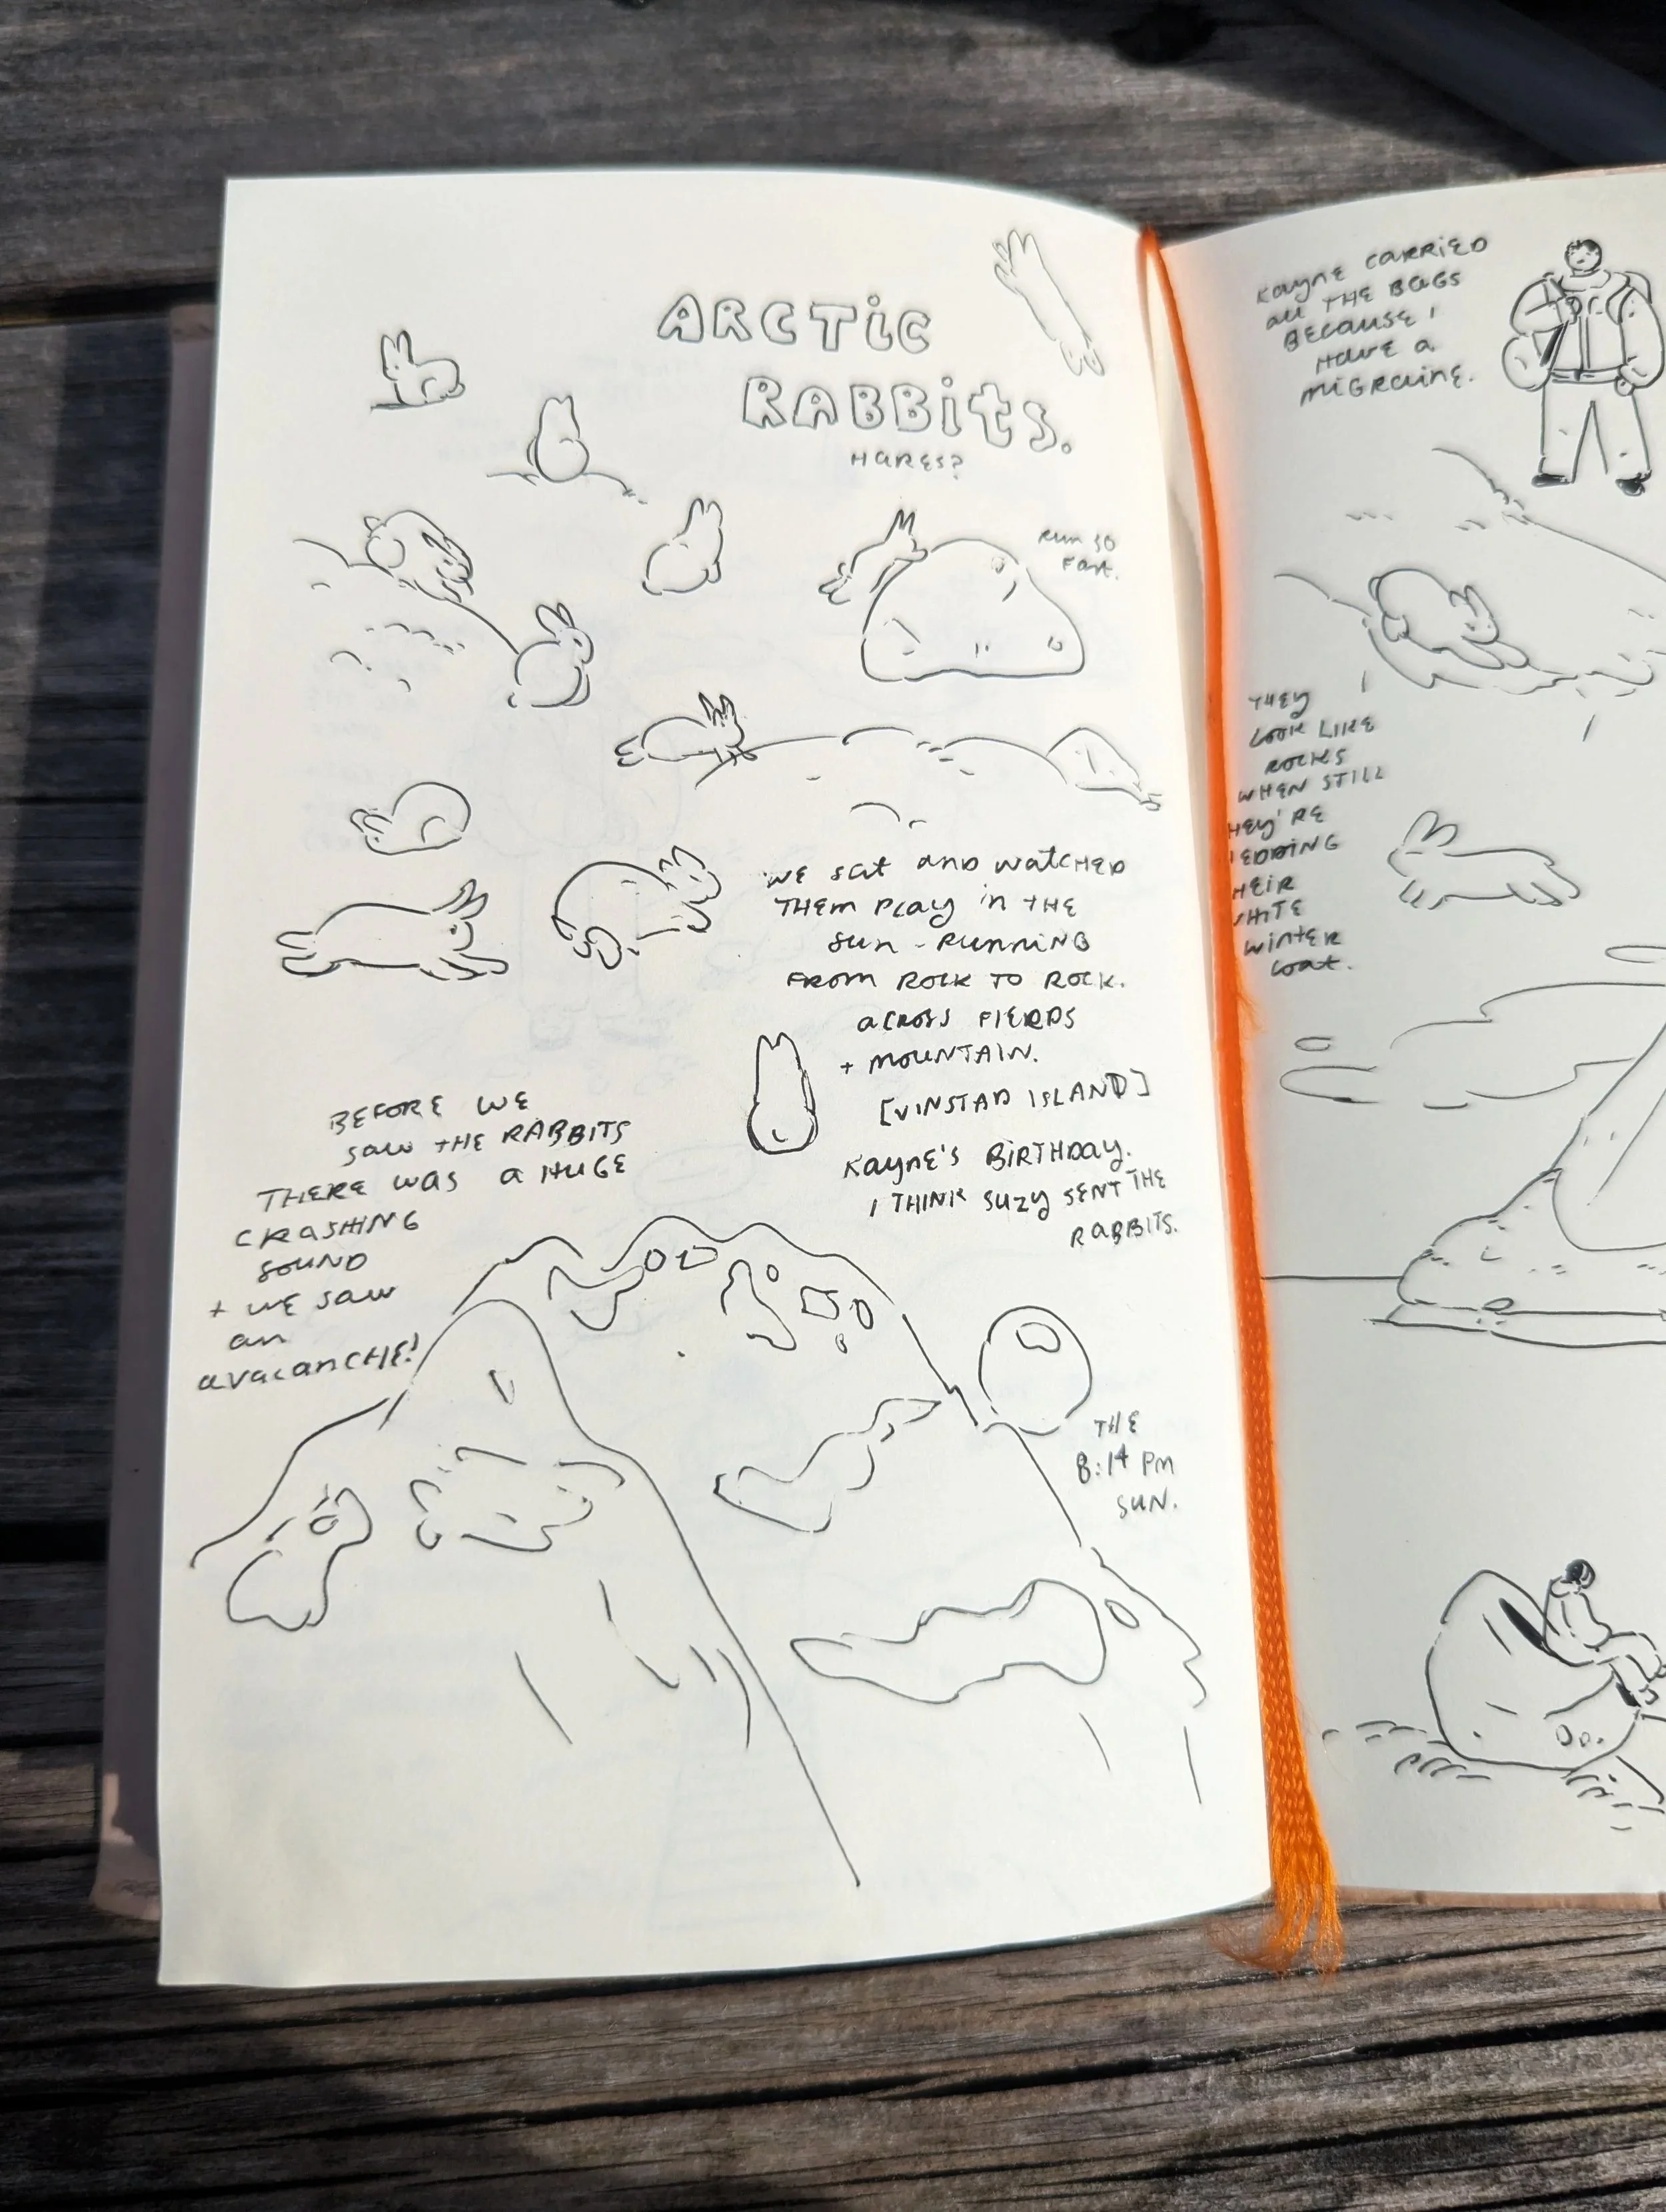 ARCTIC
RABBITS.
HARES?
RUN SO
FAST.
WE SAT AND WATCHED
THEM PLAY IN THE
SUN - RUNNING
FROM ROCK TO ROCK.
ACROSS FIERDS
+ MOUNTAIN.
[VINSTAD ISLAND]
KAYNE'S BIRTHDAY.
I THINK SUZY SENT THE
RABBITS.
BEFORE WE
SAW THE RABBITS
THERE WAS A HUGE
CRASHING
SOUND
+ WE SAW
AN
AVALANCHE!
THE
8:14 PM
SUN.
KAYNE CARRIED
ALL THE BAGS
BECAUSE I
HAVE A
MIGRAINE.
THEY
LOOK LIKE
ROCKS
WHEN STILL
HEY'RE
EDDING
HEIR
HITE
WINTER
COAT.